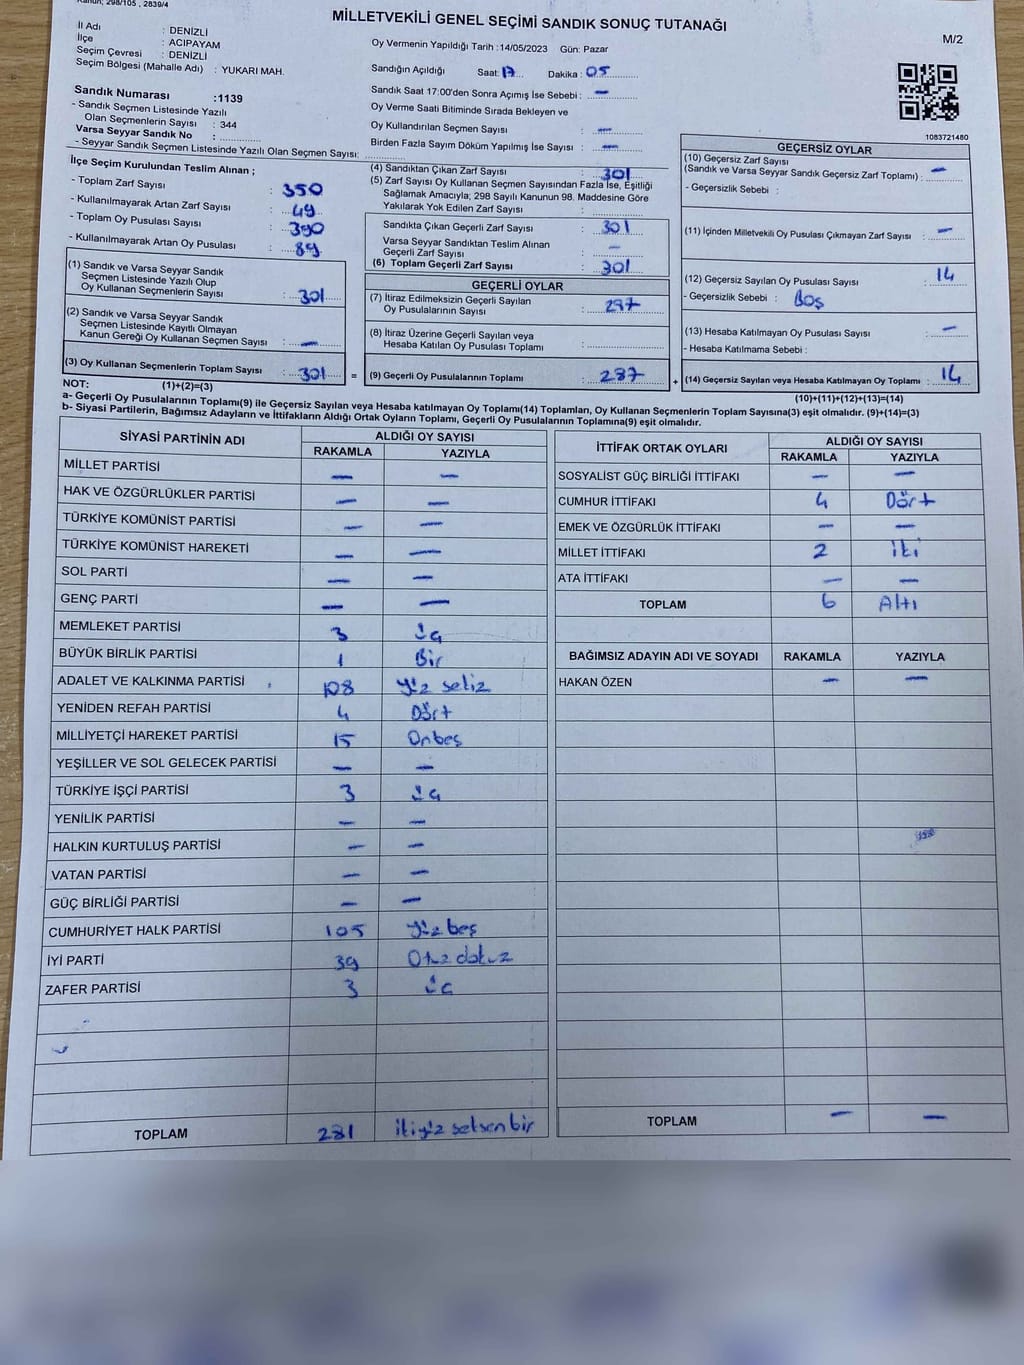 Kanun; 298/105 , 2839/4
MİLLETVEKİLİ GENEL SEÇİMİ SANDIK SONUÇ TUTANAĞI
M/2
İl Adı : DENİZLİ
İlçe : ACIPAYAM
Seçim Çevresi : DENİZLİ
Seçim Bölgesi (Mahalle Adı) : YUKARI MAH.
Oy Vermenin Yapıldığı Tarih :14/05/2023 Gün: Pazar
Sandığın Açıldığı Saat: 17 Dakika : 05
Sandık Saat 17:00'den Sonra Açımış İse Sebebi : —
Oy Verme Saati Bitiminde Sırada Bekleyen ve
Oy Kullandırılan Seçmen Sayısı : —
Birden Fazla Sayım Döküm Yapılmış İse Sayısı : —
1083721480
Sandık Numarası :1139
- Sandık Seçmen Listesinde Yazılı
Olan Seçmenlerin Sayısı : 344
Varsa Seyyar Sandık No :
- Seyyar Sandık Seçmen Listesinde Yazılı Olan Seçmen Sayısı:
İlçe Seçim Kurulundan Teslim Alınan ;
- Toplam Zarf Sayısı : 350
- Kullanılmayarak Artan Zarf Sayısı : 49
- Toplam Oy Pusulası Sayısı : 390
- Kullanılmayarak Artan Oy Pusulası : 89
(1) Sandık ve Varsa Seyyar Sandık
Seçmen Listesinde Yazılı Olup
Oy Kullanan Seçmenlerin Sayısı : 301
(2) Sandık ve Varsa Seyyar Sandık
Seçmen Listesinde Kayıtlı Olmayan
Kanun Gereği Oy Kullanan Seçmen Sayısı : —
(3) Oy Kullanan Seçmenlerin Toplam Sayısı : 301 =
(4) Sandıktan Çıkan Zarf Sayısı : 301
(5) Zarf Sayısı Oy Kullanan Seçmen Sayısından Fazla İse, Eşitliği
Sağlamak Amacıyla; 298 Sayılı Kanunun 98. Maddesine Göre
Yakılarak Yok Edilen Zarf Sayısı :
Sandıkta Çıkan Geçerli Zarf Sayısı : 301
Varsa Seyyar Sandıktan Teslim Alınan
Geçerli Zarf Sayısı : —
(6) Toplam Geçerli Zarf Sayısı : 301
GEÇERLİ OYLAR
(7) İtiraz Edilmeksizin Geçerli Sayılan
Oy Pusulalarının Sayısı : 287
(8) İtiraz Üzerine Geçerli Sayılan veya
Hesaba Katılan Oy Pusulası Toplamı :
(9) Geçerli Oy Pusulalarının Toplamı : 287 +
GEÇERSİZ OYLAR
(10) Geçersiz Zarf Sayısı
(Sandık ve Varsa Seyyar Sandık Geçersiz Zarf Toplamı) : —
- Geçersizlik Sebebi :
(11) İçinden Milletvekili Oy Pusulası Çıkmayan Zarf Sayısı : —
(12) Geçersiz Sayılan Oy Pusulası Sayısı : 14
- Geçersizlik Sebebi : Boş
(13) Hesaba Katılmayan Oy Pusulası Sayısı : —
- Hesaba Katılmama Sebebi :
(14) Geçersiz Sayılan veya Hesaba Katılmayan Oy Toplamı : 14
NOT: (1)+(2)=(3)
(10)+(11)+(12)+(13)=(14)
a- Geçerli Oy Pusulalarının Toplamı(9) ile Geçersiz Sayılan veya Hesaba katılmayan Oy Toplamı(14) Toplamları, Oy Kullanan Seçmenlerin Toplam Sayısına(3) eşit olmalıdır. (9)+(14)=(3)
b- Siyasi Partilerin, Bağımsız Adayların ve İttifakların Aldığı Ortak Oyların Toplamı, Geçerli Oy Pusulalarının Toplamına(9) eşit olmalıdır.
SİYASİ PARTİNİN ADI
ALDIĞI OY SAYISI
RAKAMLA YAZIYLA
MİLLET PARTİSİ — —
HAK VE ÖZGÜRLÜKLER PARTİSİ — —
TÜRKİYE KOMÜNİST PARTİSİ — —
TÜRKİYE KOMÜNİST HAREKETİ — —
SOL PARTİ — —
GENÇ PARTİ — —
MEMLEKET PARTİSİ 3 üç
BÜYÜK BİRLİK PARTİSİ 1 Bir
ADALET VE KALKINMA PARTİSİ 108 yüz sekiz
YENİDEN REFAH PARTİSİ 4 Dört
MİLLİYETÇİ HAREKET PARTİSİ 15 Onbeş
YEŞİLLER VE SOL GELECEK PARTİSİ — —
TÜRKİYE İŞÇİ PARTİSİ 3 üç
YENİLİK PARTİSİ — —
HALKIN KURTULUŞ PARTİSİ — —
VATAN PARTİSİ — —
GÜÇ BİRLİĞİ PARTİSİ — —
CUMHURİYET HALK PARTİSİ 105 yüz beş
İYİ PARTİ 39 Otuz dokuz
ZAFER PARTİSİ 3 üç
TOPLAM 281 ikiyüz seksen bir
İTTİFAK ORTAK OYLARI
ALDIĞI OY SAYISI
RAKAMLA YAZIYLA
SOSYALİST GÜÇ BİRLİĞİ İTTİFAKI — —
CUMHUR İTTİFAKI 4 Dört
EMEK VE ÖZGÜRLÜK İTTİFAKI — —
MİLLET İTTİFAKI 2 iki
ATA İTTİFAKI — —
TOPLAM 6 Altı
BAĞIMSIZ ADAYIN ADI VE SOYADI RAKAMLA YAZIYLA
HAKAN ÖZEN — —
TOPLAM — —